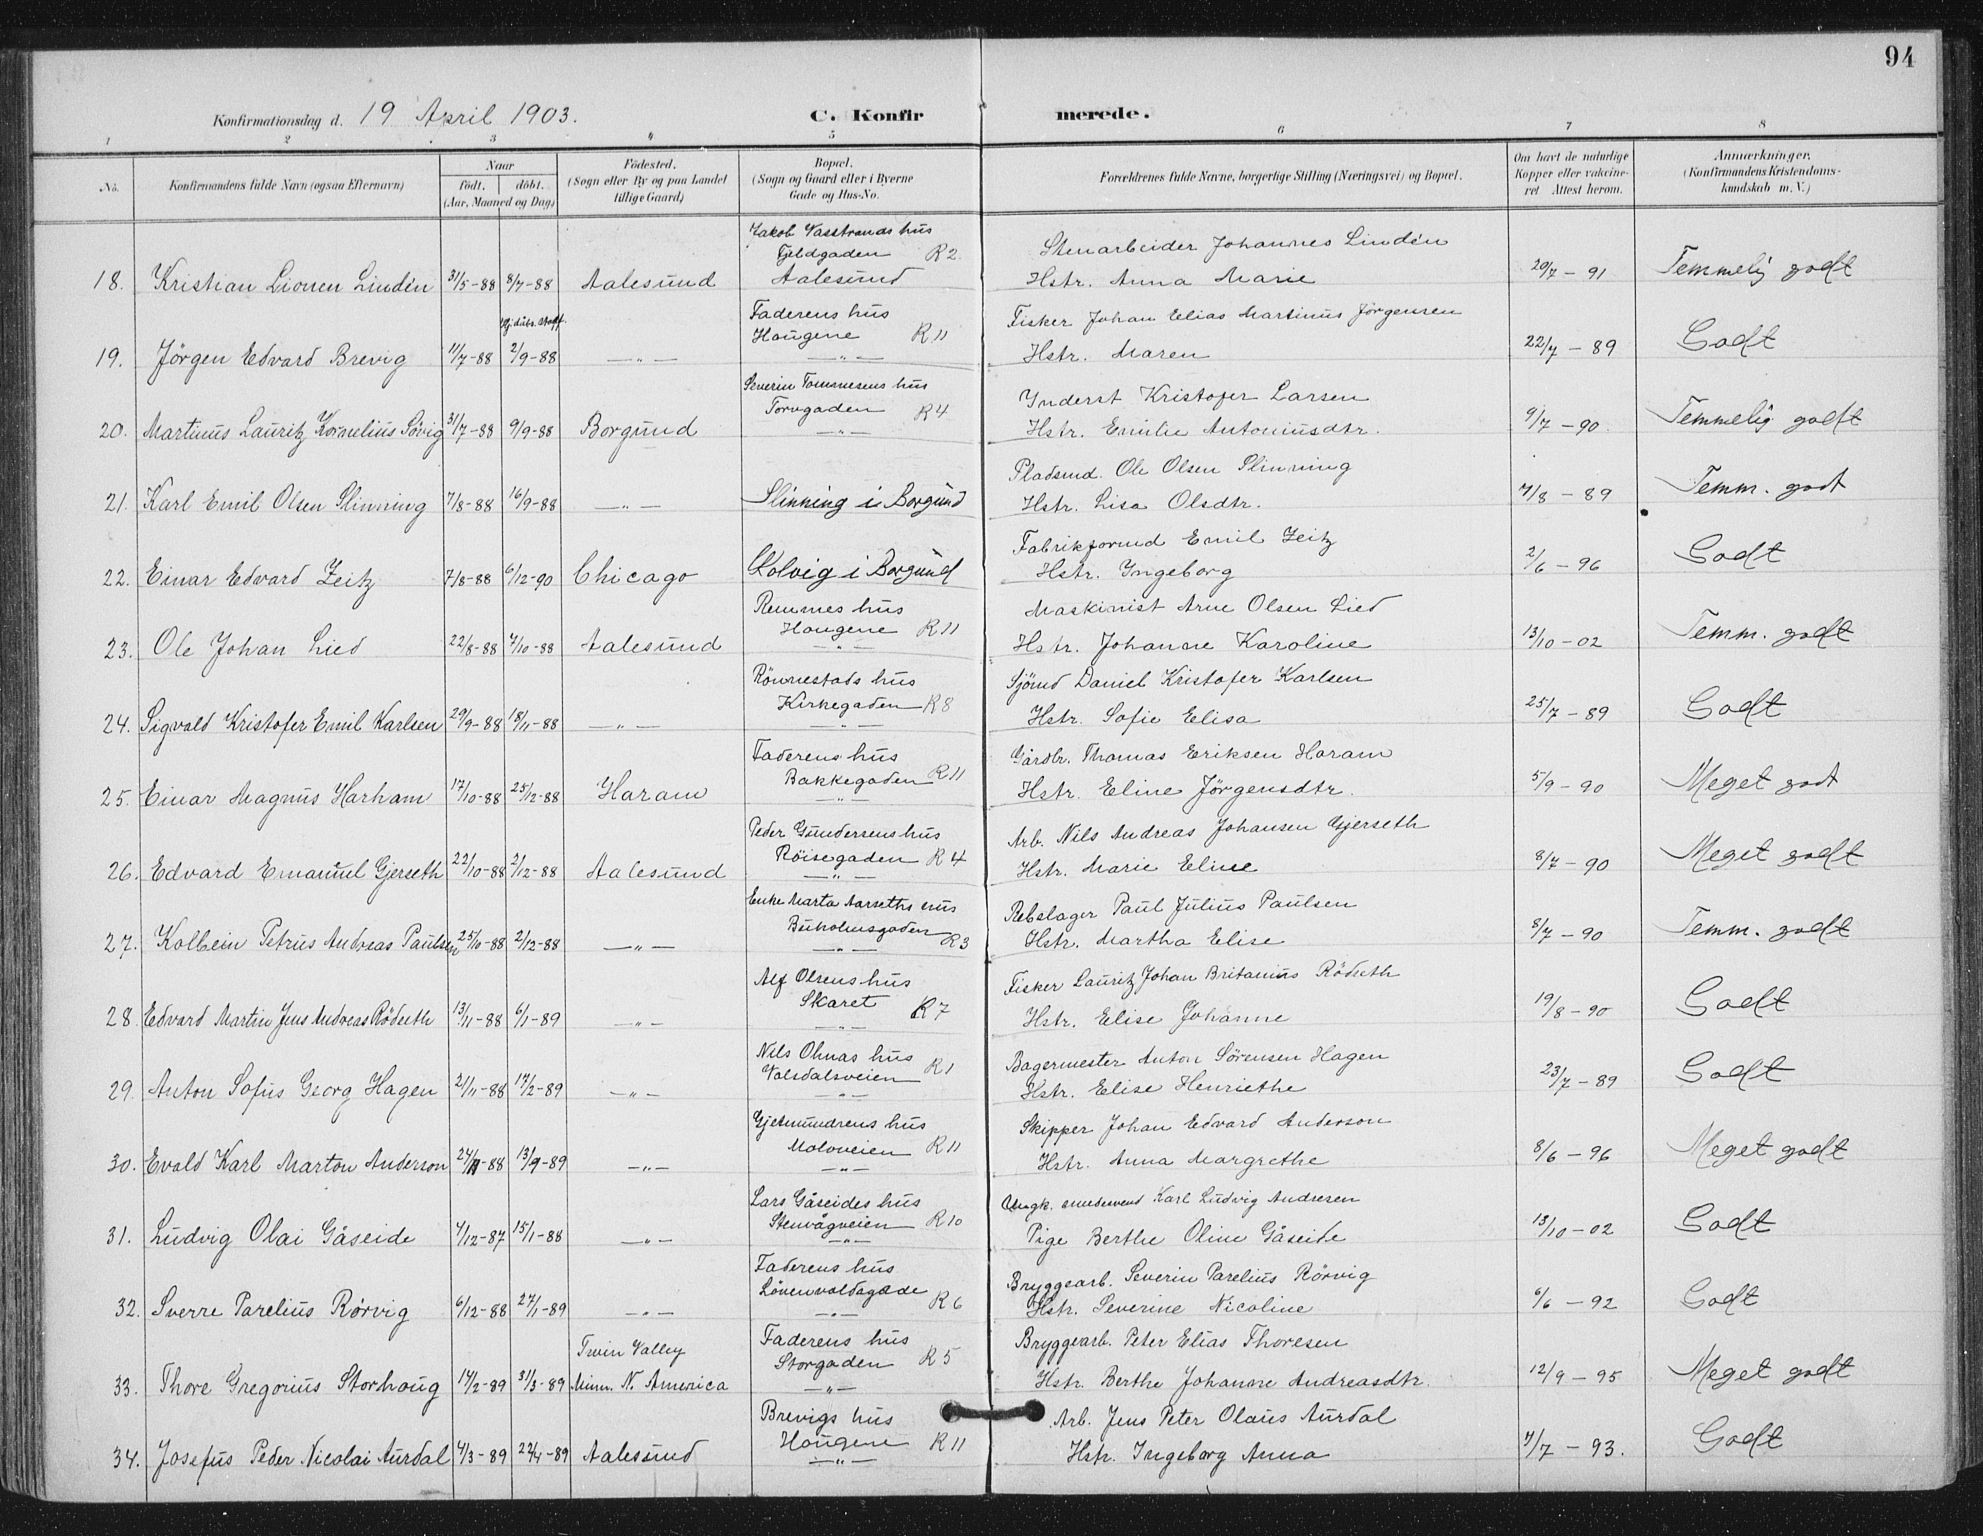 94
Konfirmationsdag d. 19 April 1903. C. Konfirmerede.
1 2 3 4 5 6 7 8
No. Konfirmandens fulde Navn (ogsaa Efternavn) Naar födt. döbt. (Aar, Maaned og Dag) Födested. (Sogn eller By og paa Landet tillige Gaard) Bopæl. (Sogn og Gaard eller i Byerne Gade og Hus-No. Forældrenes fulde Navne, borgerlige Stilling (Næringsvei) og Bopæl. Om havt de naturlige Kopper eller vakcineret Attest herom. Anmærkninger. (Konfirmandens Kristendomskundskab m. V.)
Jakob Vasstrands hus
Fjeldgaden R 2 Stenarbeider Johannes Lindén
18. Kristian Lionen Lindén 31/5-88 8/7-88 Aalesund Aalesund Hstr. Anna Marie 20/7 - 91 Temmelig godt
Faderens hus Fisker Johan Elias Martinus Jörgensen
19. Jörgen Edvard Brevig 11/7-88 2/9-88 —„— Hougene R 11 —„— Hstr. Maren 22/7 - 89 Godt
Severin Tommesens hus
Torvgaden R 4 Inderst Kristofer Larsen
20. Martinus Lauritz Kornelius Sövig 31/7-88 9/9-88 Borgund —„— Hstr. Emilie Antoniusdtr. 9/7 - 90 Temmelig godt
Pladsmd. Ole Olsen Slinning
21. Karl Emil Olsen Slinning 7/8-88 16/9-88 —„— Slinning i Borgund Hstr. Lisa Olsdtr. 7/8 - 89 Temm. godt
Fabrikformd Emil Zeitz
22. Einar Edvard Zeitz 7/8-88 6/12-90 Chicago Kolvig i Borgund Hstr. Ingeborg 2/6 - 96 Godt
Remmes hus
Hougene R 11 Maskinist Arne Olsen Lied
23. Ole Johan Lied 22/8-88 7/10-88 Aalesund —„— Hstr. Johanne Karoline 13/10-02 Temm. godt
Rönnestads hus
Kirkegaden R 8 Sjömd Daniel Kristofer Karlsen
24. Sigvald Kristofer Emil Karlsen 29/9-88 18/11-88 —„— —„— Hstr. Sofie Elisa 25/7 - 89 Godt
Faderens hus
Bakkegaden R 11 Gårdbr. Thomas Eriksen Haram
25. Einar Magnus Harham 17/10-88 25/12-88 Haram —„— Hstr. Eline Jörgensdtr. 5/9 - 90 Meget godt
Peder Gundersens hus
Röisegaden R 4 Arb. Nils Andreas Johansen Gjerseth
26. Edvard Emanuel Gjerseth 22/10-88 2/12-88 Aalesund —„— Hstr. Marie Eline 8/7 - 90 Meget godt
Enke Marta Aarseths hus
Buholmsgaden R 3 Rebslager Paul Julius Paulsen
27. Kolbein Petrus Andreas Paulsen 25/10-88 2/12-88 —„— —„— Hstr. Martha Elise 8/7 - 90 Temm. godt
Alf Olsens hus
Skaret R 7 Fisker Lauritz Johan Britanius Rödseth
28. Edvard Martin Jens Andreas Rödseth 13/11-88 6/1-89 —„— —„— Hstr. Elise Johanne 19/8 - 90 Godt
Nils Ohnas hus
Volsdalsveien R 1 Bagermester Anton Sörensen Hagen
29. Anton Sofus Georg Hagen 21/11-88 17/2-89 —„— —„— Hstr. Elise Henriethe 23/7 - 89 Godt
Gjetmundsens hus
Moloveien R 11 Skipper Johan Edvard Anderson
30. Evald Karl Marton Anderson 24/11-88 13/9-89 —„— —„— Hstr. Anna Margrethe 8/6 - 96 Meget godt
Lars Gåseides hus
Stenvågveien R 10 Ungk. smedsvend Karl Ludvig Andresen
31. Ludvig Olai Gåseide 4/12-87 15/1-88 —„— —„— Pige Berthe Oline Gåseide 13/10-02 Godt
Faderens hus
Lövenvoldsgade R 6 Bryggearb. Severin Parelius Rörvig
32. Sverre Parelius Rörvig 6/12-88 27/1-89 —„— —„— Hstr. Severine Nicoline 6/6 - 92 Godt
Twin Valley Faderens hus
Storgaden R 5 Bryggearb. Peter Elias Thoresen
33. Thore Gregorius Storhoug 14/2-89 31/3-89 Minn. N. America —„— Hstr. Berthe Johanne Andreasdtr. 12/9 - 95 Meget godt
Brevigs hus Arb. Jens Peter Olaus Aurdal
34. Josefus Peder Nicolai Aurdal 4/3-89 22/4-89 Aalesund Hougene R 11 —„— Hstr. Ingeborg Anna 7/7 - 93. Godt